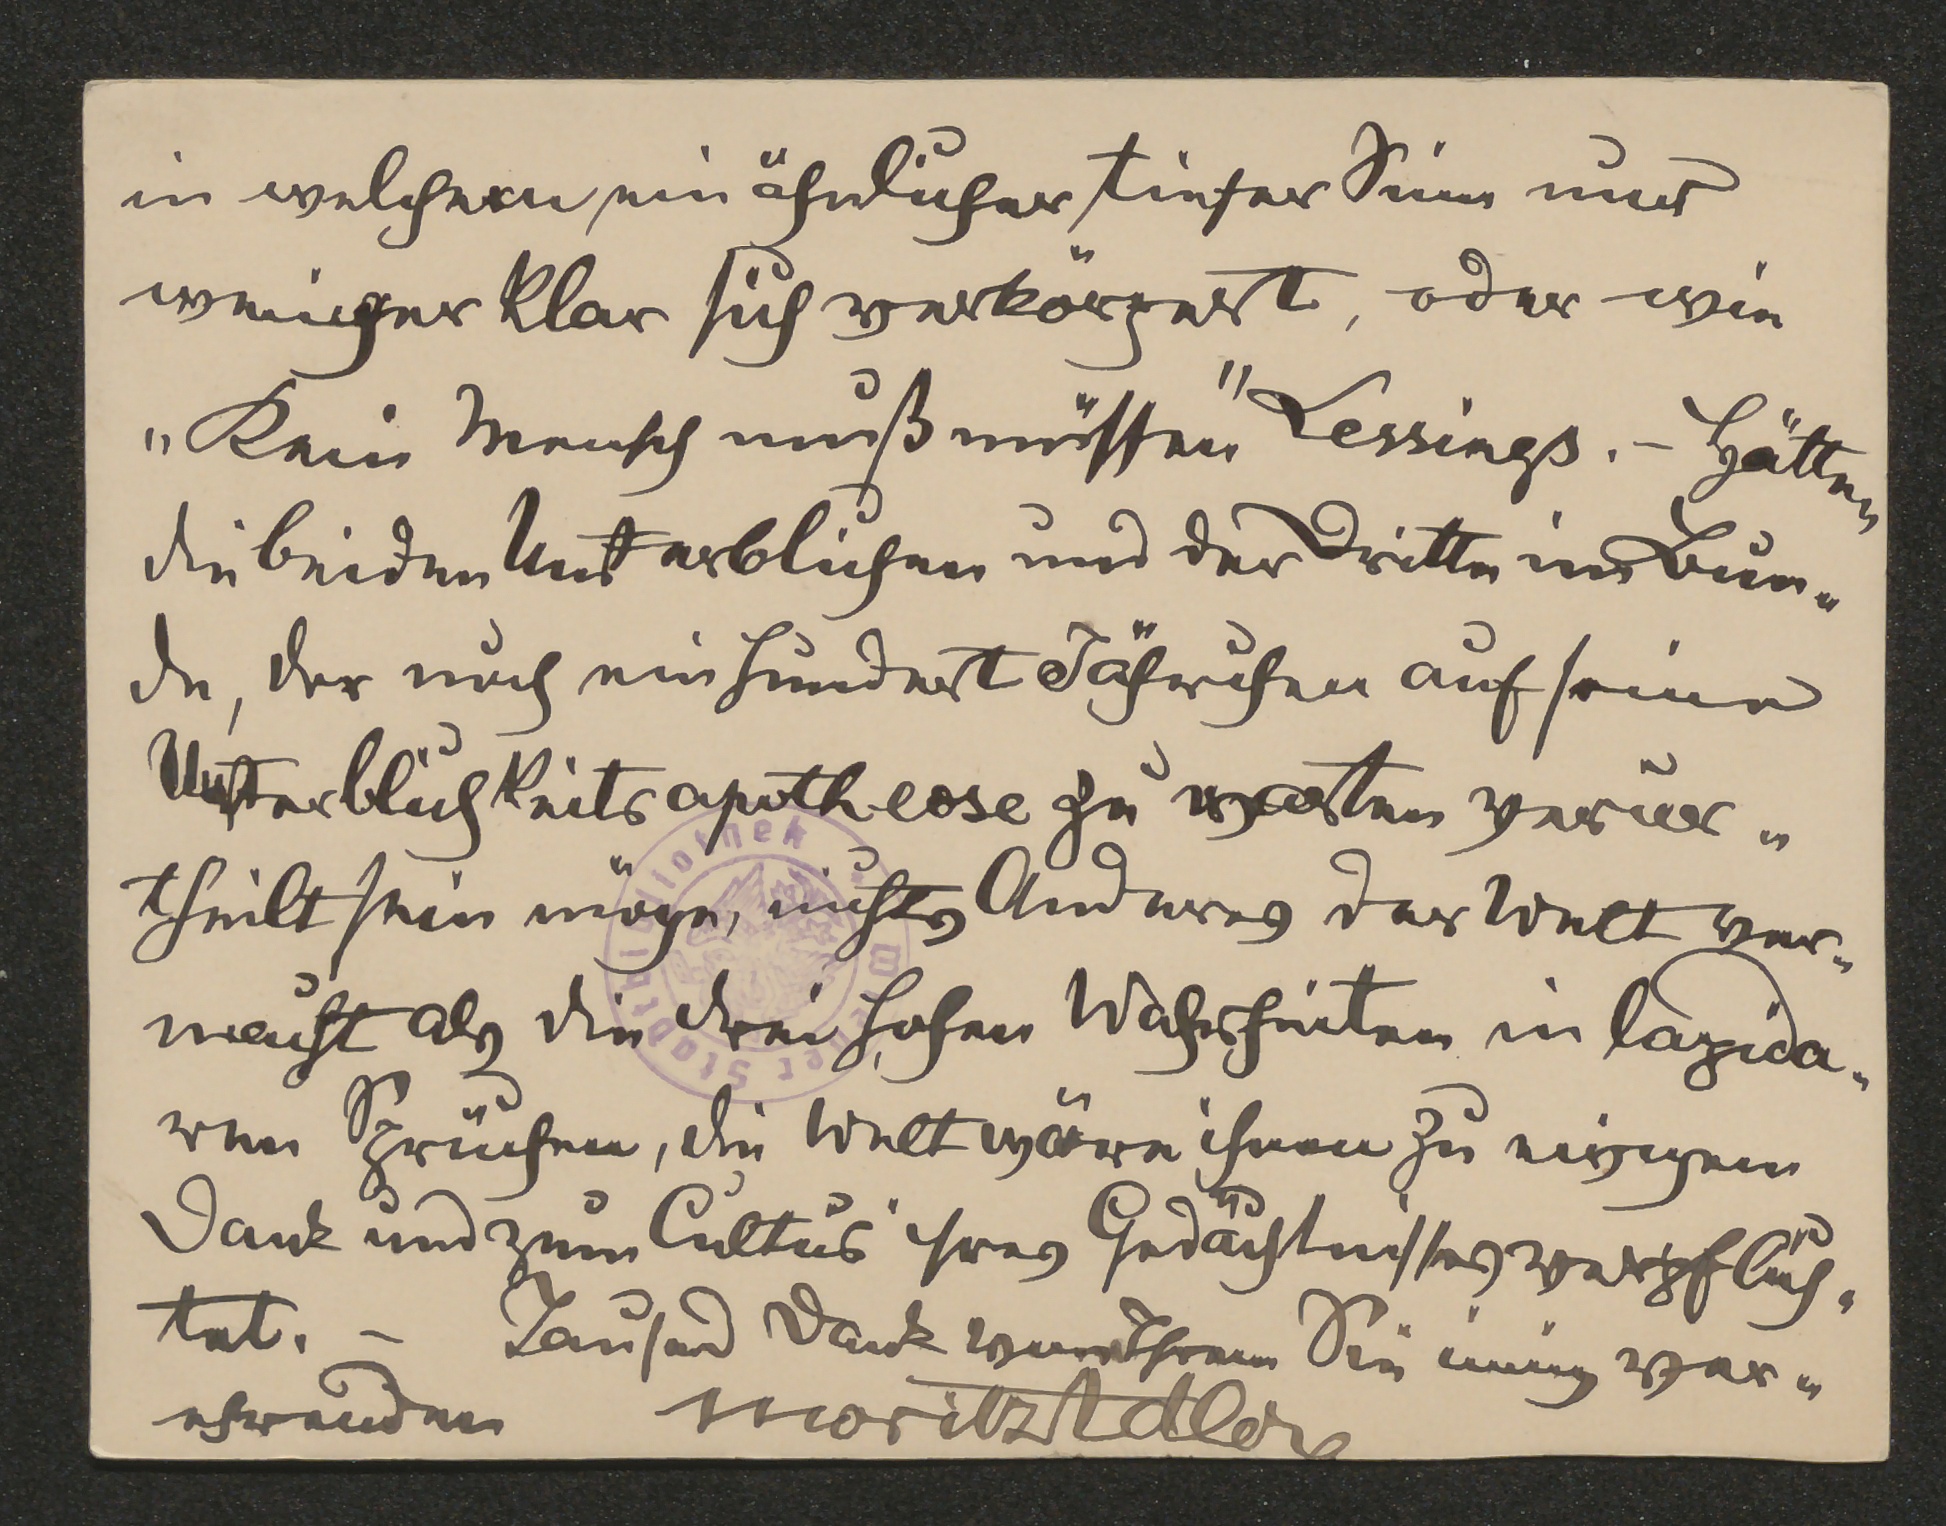 in welchem ein ähnlicher tiefer Sinn nur
weniger klar sich verkörpert, oder wie
„Kein Mensch muß müssen" Lessings. – Hätten
die beiden Unsterblichen und der Dritte im Bun„
de, der noch ein hundert Jährchen auf seine
Unsterblichkeitsapotheose zu warten verur„
theilt sein möge, nichts Anderes der Welt ver„
macht als die drei hohen Wahrheiten in lapida„
ren Sprüchen, die Welt wäre ihnen zu ewigem
Dank und zum Cultus ihres Gedächtnisses verpflich„
tet. – Tausend Dank von Ihrem Sie innig ver„
ehrenden Moritz Adler
Wiener Stadtbibliothek